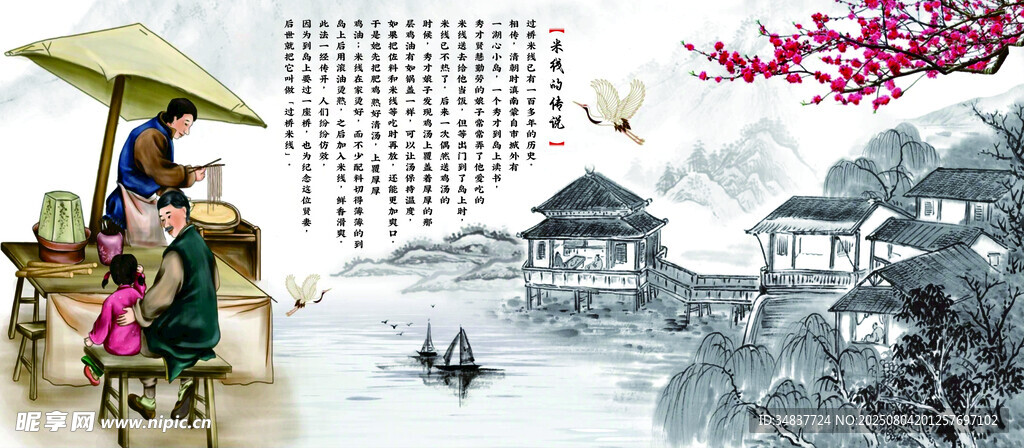 【米线的传说】
过桥米线已有一百多年的历史,
相传,清朝时滇南蒙自市城外有
一湖心小岛,一个秀才到岛上读书,
秀才贤慧勤劳的娘子常常弄了他爱吃的
米线送去给他当饭,但等出门到了岛上时,
米线已不热了,后来一次偶然送鸡汤的
时候,秀才娘子发现鸡汤上覆盖着厚厚的那
层鸡油有如锅盖一样,可以让汤保持温度,
如果把佐料和米线等吃时再放,还能更加爽口,
于是她先把肥鸡熬好清汤,上覆厚厚
鸡油;米线在家烫好,而不少配料切得薄薄的到
岛上后用滚油烫熟,之后加入米线,鲜香滑爽,
此法一经传开,人们纷纷仿效,
因为到岛上要过一座桥,也为纪念这位贤妻,
后世就把它叫做「过桥米线」,
昵享网 www.nipic.cn
ID:34837724 NO:20250804201257697102